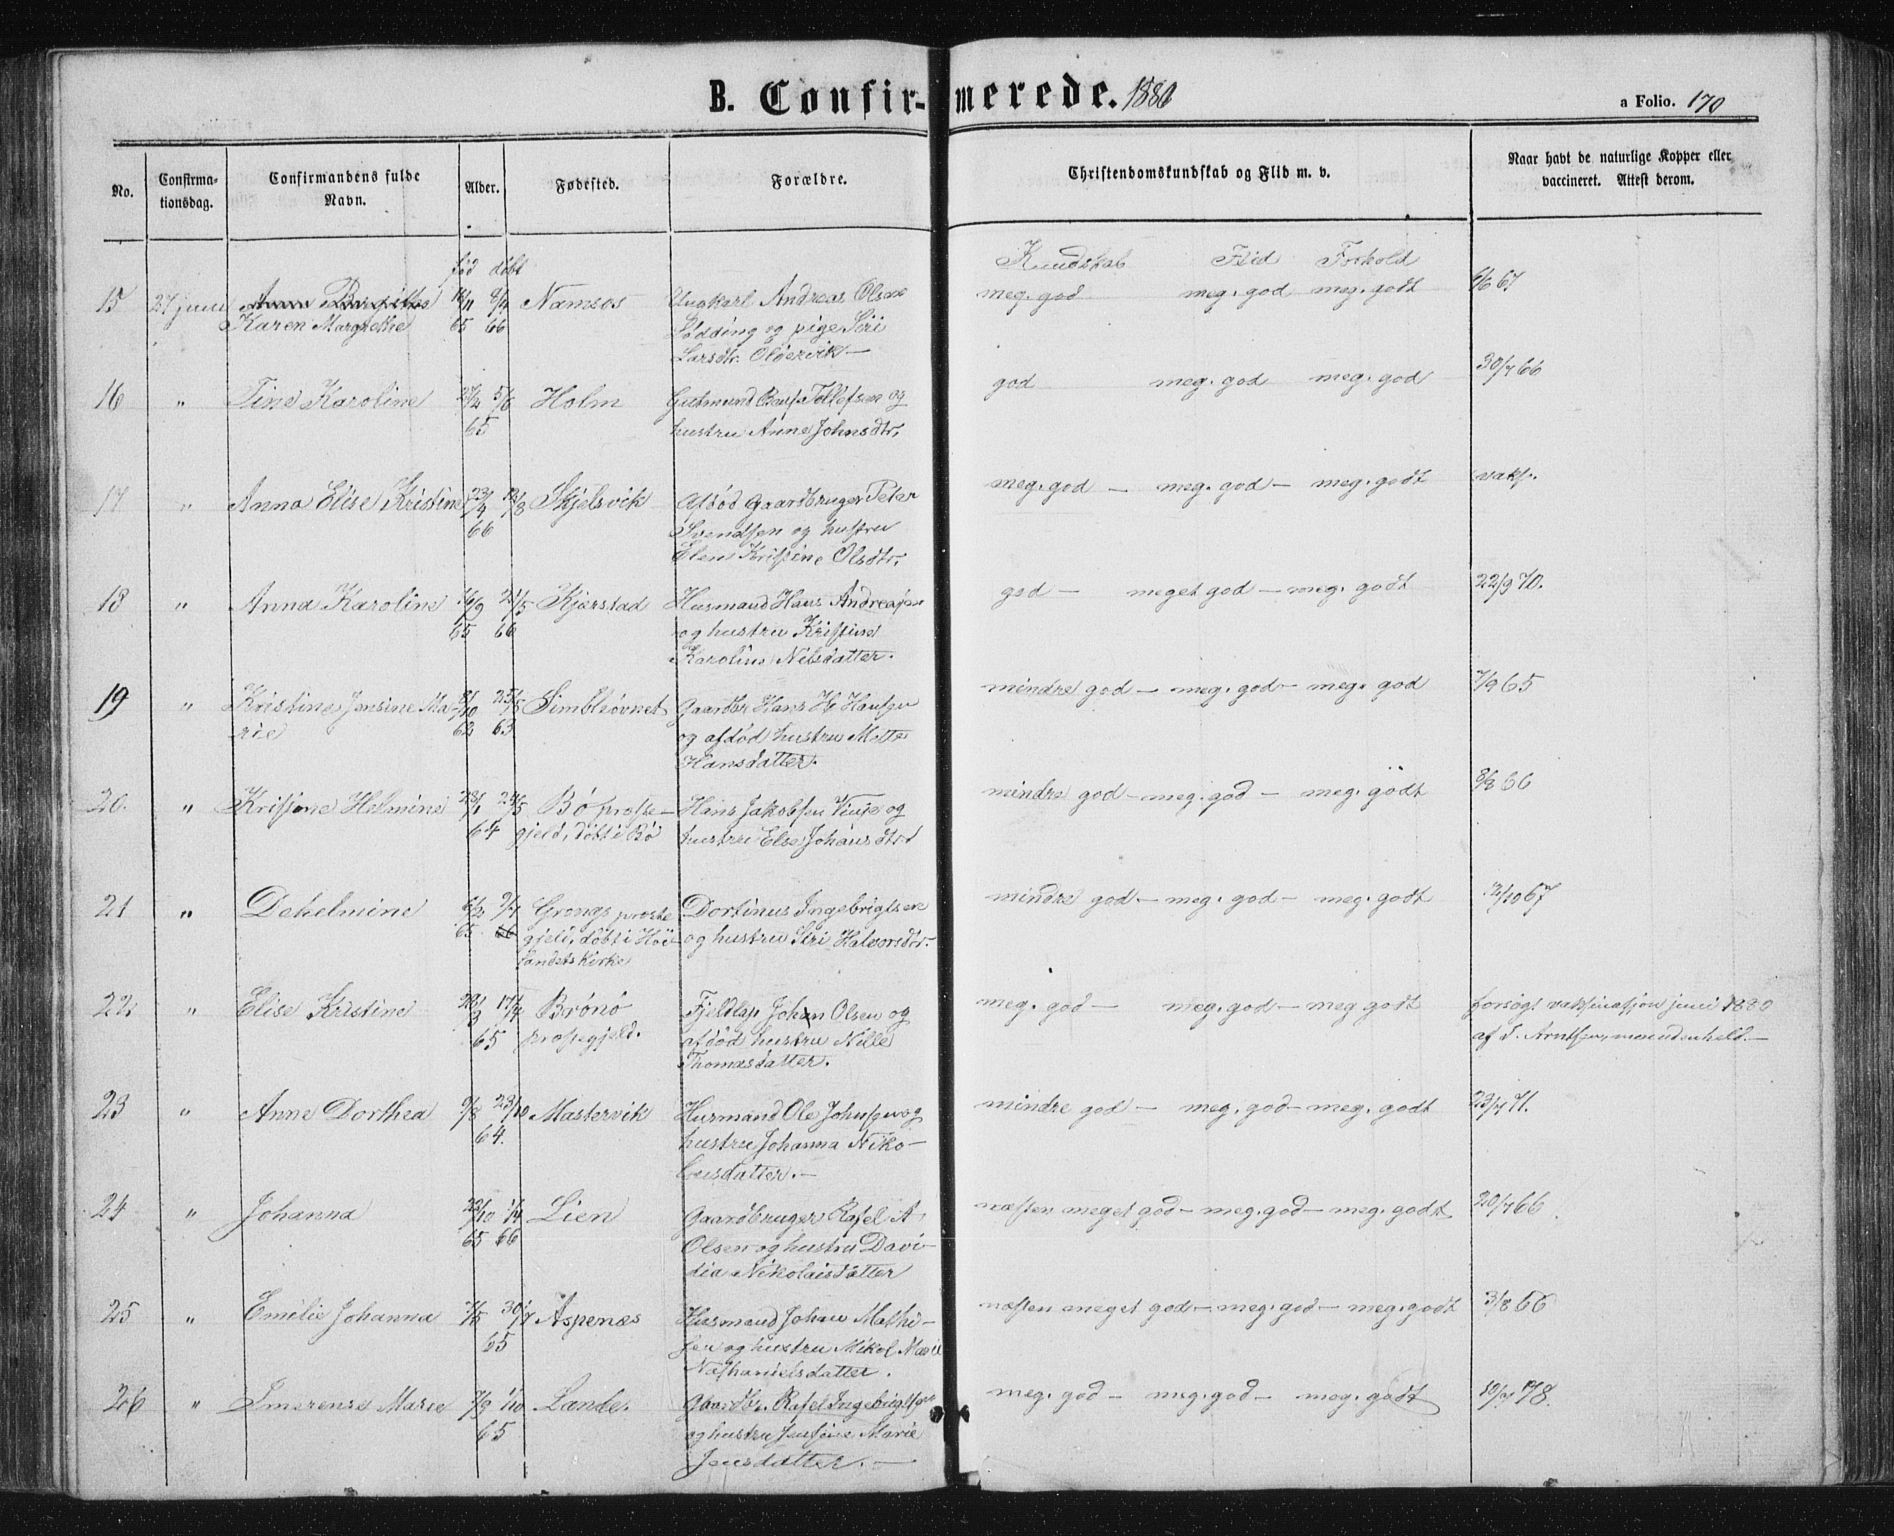 B. Confir- merede. 1880
a Folio. 170
No.
Confirma-
tionsdag.
Confirmandens fulde
Navn.
Alder.
Fødested.
Forældre.
Christendomskundskab og Flid m. v.
Naar havt de naturlige Kopper eller
vaccineret. Attest derom.
født døbt
Kundskab Flid Forhold
15 27 juni Namsos Ungkarl Andreas Olsen meg. god meg. god meg. godt 6/6 67
Karen Margrethe 65 66 Lødding og pige Siri
Larsdtr. Oldervik —
16 " Tine Karoline 5/6 Holm Gutmund Tellefsen og god meg. god meg. god 30/7 66
65 hustru Anne Johnsdtr.
17 " Anna Elise Kristine 23/4 12/8 Skjelsvik Afdød Gaardbruger Peter meg. god — meg. god — meg. godt vaks.
66 Svendsen og hustru
Elen Kristine Olsdtr.
18 " Anna Karoline 16/9 21/5 Kjærstad Husmand Hans Andreasen god — meget god — meg. godt 22/9 70.
65 66 og hustru Kristine
Karoline Nilsdatter.
19 " Kristine Jensine Ma- 25/5 Simbleøvnet Gaardbr Hans H Hansen mindre god — meg. god — meg. god 7/9 65
rie 62 63 og afdød hustru Mette
Hansdatter.
20. " Kristine Helmine 28/1 24/5 Bø præste- Hans Jakobsen og mindre god — meg. god — meg. godt 8/8 66
64 gjeld, døbt i Bø hustru Else Johansdtr
21 " Dehelmine 6/2 9/7 Grongs præste Dortinus Ingebrigtsen mindre god — meg. god — meg. godt 12/10 67
65. 66 gjeld, døbt i Høi- og hustru Siri Halvorsdtr.
landets Kirke
22. " Elise Kristine 28/3 17/4 Brønø Fjeldlap Johan Olsen og meg. god — meg. god — meg godt forsøgt vaksinasjon juni 1880
65 præstegjeld. afdød hustru Nille af I. Arntsen, men uden held. —
Thomasdatter.
23 " Anne Dorthea 9/8 23/10 Mastervik Husmand Ole Johnsen og mindre god — meg. god — meg. godt 23/7 71.
64. hustru Johanna Niko-
lausdatter. —
24 " Johanna 23/10 1/4 Lien Gaardbruger Rafel A næsten meget god — meg. god — meg. godt 20/7 66
65 66 Olsen og hustru Davi-
dia Nikolaisdatter
25 " Emilie Johanna 7/5 30/7 Aspenæs Husmand Johan Mathi- næsten meget god — meg. god — meg. godt 3/8 66
65 sen og hustru Mikol Marie
Nathanielsdatter.
26 " Imerense Marie 7/9 1/10 Lande. Gaardbr. Rafel Ingebrigtsen meg. god — meg. god — meg. godt 10/7 78.
65 og hustru Jensine Marie
Jensdatter. —